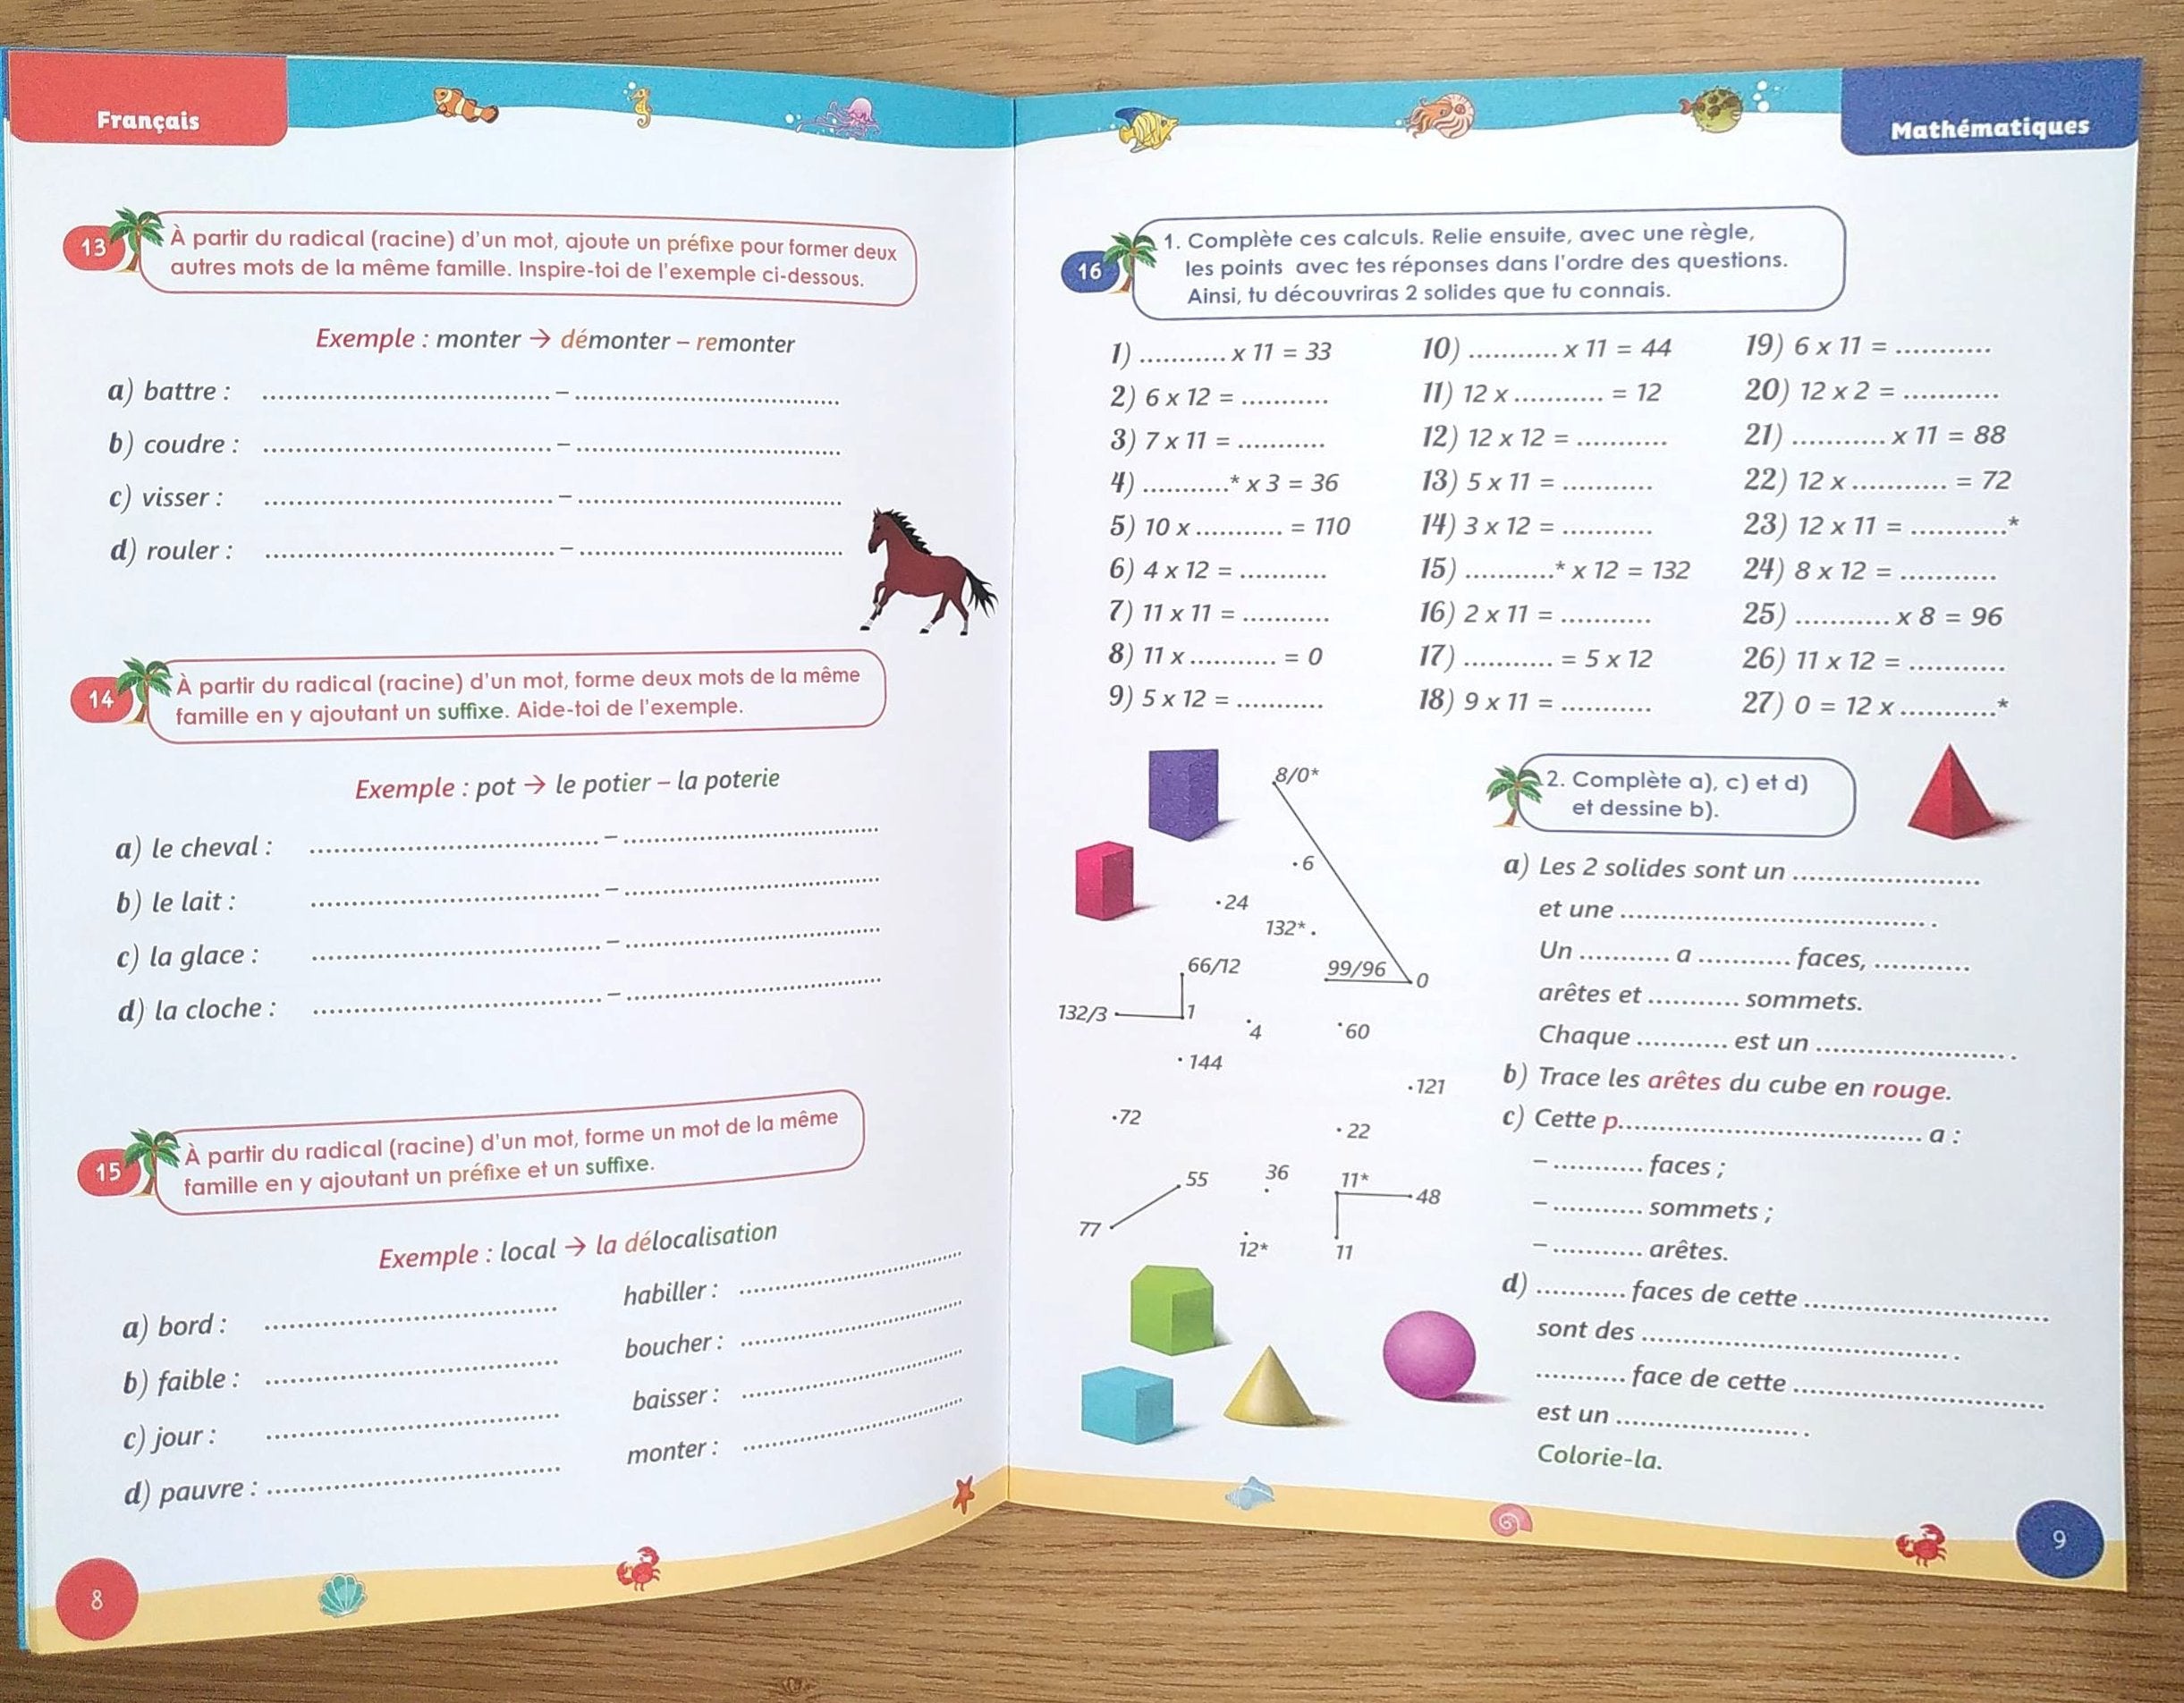 Français
13 À partir du radical (racine) d'un mot, ajoute un préfixe pour former deux
autres mots de la même famille. Inspire-toi de l'exemple ci-dessous.
Exemple : monter → démonter – remonter
a) battre : .............................. – ..............................
b) coudre : .............................. – ..............................
c) visser : .............................. – ..............................
d) rouler : .............................. – ..............................
14 À partir du radical (racine) d'un mot, forme deux mots de la même
famille en y ajoutant un suffixe. Aide-toi de l'exemple.
Exemple : pot → le potier – la poterie
a) le cheval : .............................. – ..............................
b) le lait : .............................. – ..............................
c) la glace : .............................. – ..............................
d) la cloche : .............................. – ..............................
15 À partir du radical (racine) d'un mot, forme un mot de la même
famille en y ajoutant un préfixe et un suffixe.
Exemple : local → la délocalisation
a) bord : ..............................
b) faible : ..............................
c) jour : ..............................
d) pauvre : ..............................
habiller : ..............................
boucher : ..............................
baisser : ..............................
monter : ..............................
8
Mathématiques
16 1. Complète ces calculs. Relie ensuite, avec une règle,
les points avec tes réponses dans l'ordre des questions.
Ainsi, tu découvriras 2 solides que tu connais.
1) ........... x 11 = 33
2) 6 x 12 = ...........
3) 7 x 11 = ...........
4) ...........* x 3 = 36
5) 10 x ........... = 110
6) 4 x 12 = ...........
7) 11 x 11 = ...........
8) 11 x ........... = 0
9) 5 x 12 = ...........
10) ........... x 11 = 44
11) 12 x ........... = 12
12) 12 x 12 = ...........
13) 5 x 11 = ...........
14) 3 x 12 = ...........
15) ...........* x 12 = 132
16) 2 x 11 = ...........
17) ........... = 5 x 12
18) 9 x 11 = ...........
19) 6 x 11 = ...........
20) 12 x 2 = ...........
21) ........... x 11 = 88
22) 12 x ........... = 72
23) 12 x 11 = ...........*
24) 8 x 12 = ...........
25) ........... x 8 = 96
26) 11 x 12 = ...........
27) 0 = 12 x ...........*
8/0*
6
24
132*
66/12
99/96
0
132/3
1
4
60
144
121
72
22
55
36
11*
48
77
12*
11
2. Complète a), c) et d)
et dessine b).
a) Les 2 solides sont un ......................
et une .................................... .
Un ........... a ........... faces, ...........
arêtes et ........... sommets.
Chaque ........... est un ...................... .
b) Trace les arêtes du cube en rouge.
c) Cette p.................................... a :
– ........... faces ;
– ........... sommets ;
– ........... arêtes.
d) ........... faces de cette ..............................
sont des .................................... .
........... face de cette ..............................
est un ...................... .
Colorie-la.
9